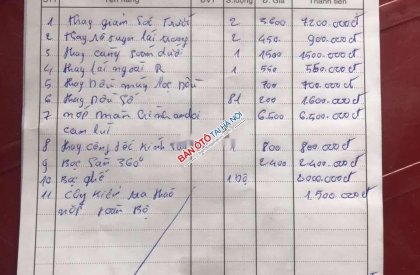 STT Tên hàng ĐVT S.lượng Đ. Giá Thành tiền
1 Thay giảm sóc trước 2 3.600 7200.000đ
2 Thay rô tuyn lái trong 2 450 900.000đ
3 Thay càng cong dưới 1 1500 1500.000đ
4 Thay lái ngoài R 1 550 550.000đ
5 Thay dầu máy lọc dầu 700 700.000đ
6 Thay dầu số 8l 200 1.600.000đ
7 màn androi 6.500 6.500.000đ
cam lùi
8 Thay công tắc kính sau 1 800 800.000đ
9 Bọc sàn 360° 2.400 2.400.000đ
10 Bọc ghế 1 bộ 2000.000đ
11 Cây kiểm tra tháo 1.500.000đ
toàn Bộ
BÁN ÔTÔ TẠI HÀ NỘI